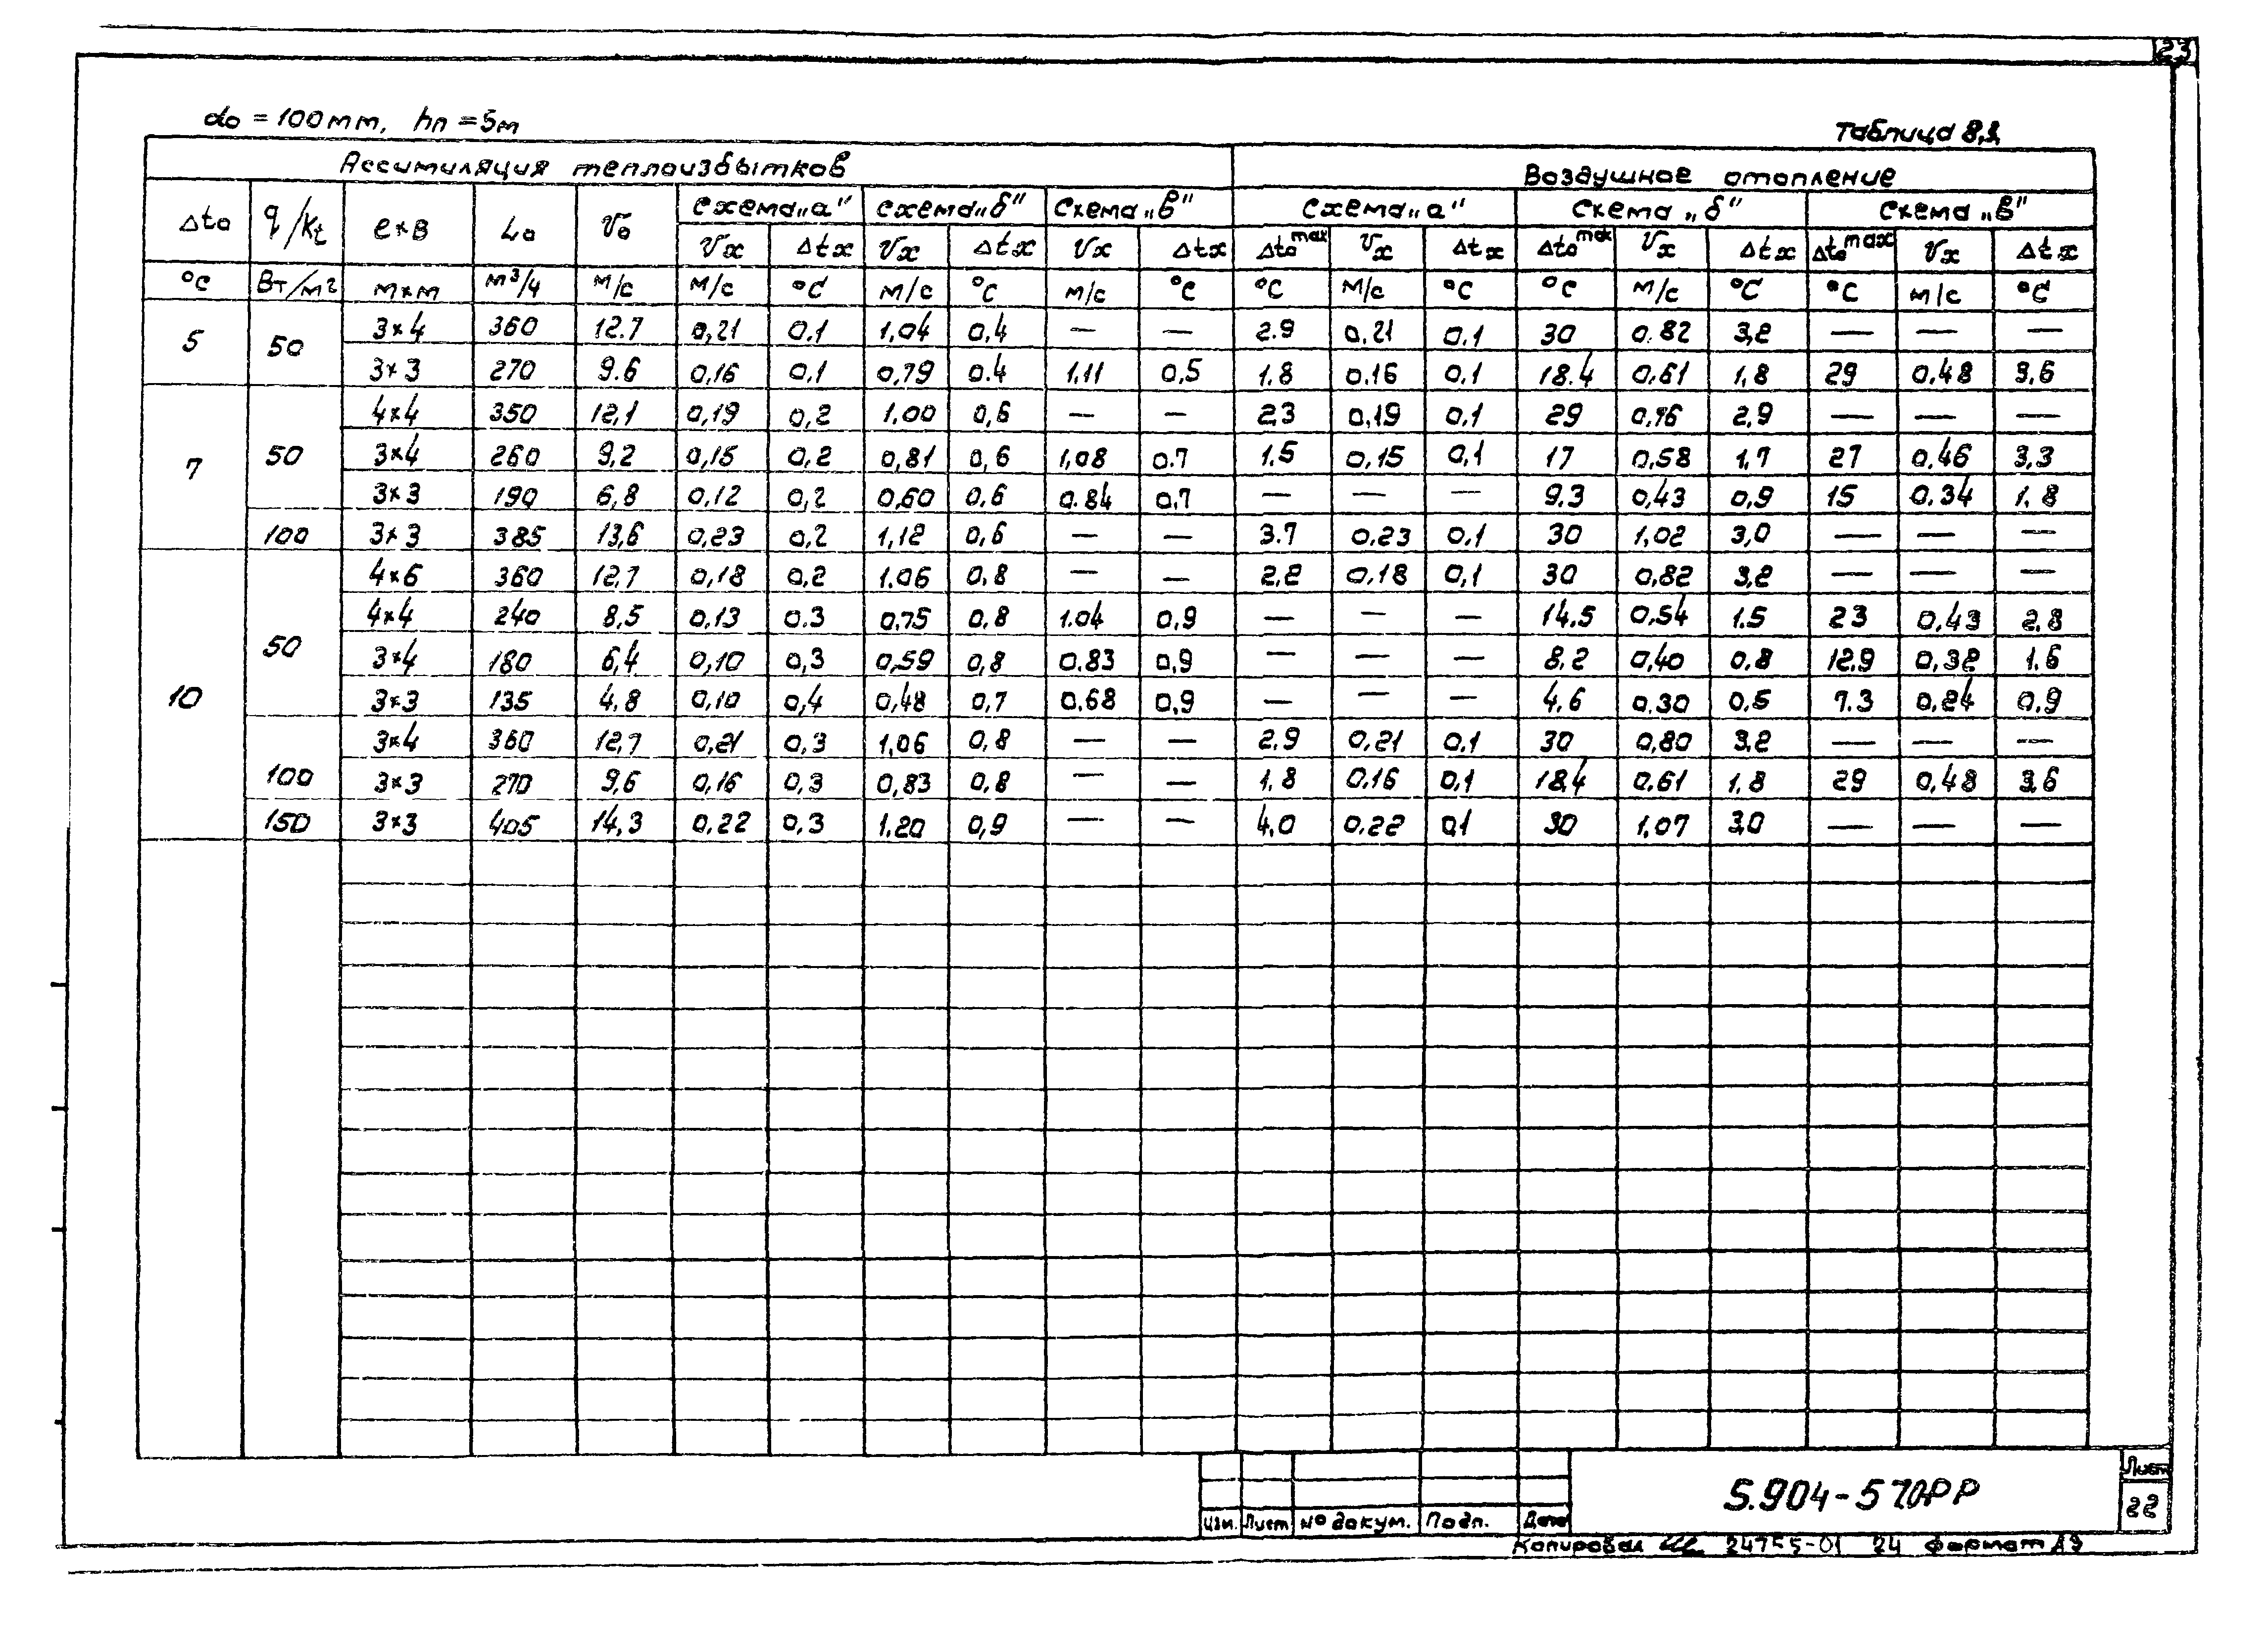 23
do = 100 mm, hп = 5м
Таблица 8,2
Ассимиляция теплоизбытков Воздушное отопление
Δto q/Kt е×в Lo Vo схема „а" схема „б" схема „в" схема „а" схема „б" схема „в"
Vx Δtx Vx Δtx Vx Δtx Δto max Vx Δtx Δto max Vx Δtx Δto max Vx Δtx
°C Вт/м² м×м м³/ч м/с м/с °C м/с °C м/с °C °C м/с °C °C м/с °C °C м/с °C
5 50 3×4 360 12.7 0,21 0.1 1,04 0,4 — — 2.9 0,21 0.1 30 0.82 3,2 — — —
3×3 270 9.6 0,16 0,1 0,79 0.4 1,11 0,5 1,8 0.16 0,1 18.4 0,61 1,8 29 0,48 3,6
7 50 4×4 350 12,1 0,19 0,2 1.00 0,6 — — 2,3 0,19 0,1 29 0,76 2,9 — — —
3×4 260 9,2 0,15 0,2 0,81 0,6 1,08 0.7 1.5 0,15 0,1 17 0,58 1,7 27 0,46 3,3
3×3 190 6,8 0,12 0,2 0,60 0,6 0.84 0,7 — — — 9.3 0,43 0,9 15 0.34 1,8
100 3×3 385 13,6 0,23 0,2 1,12 0,6 — — 3.7 0,23 0,1 30 1,02 3,0 — — —
10 50 4×6 360 12,7 0,18 0,2 1.06 0,8 — — 2,2 0,18 0,1 30 0,82 3,2 — — —
4×4 240 8,5 0,13 0.3 0,75 0,8 1.04 0,9 — — — 14,5 0,54 1.5 23 0,43 2,8
3×4 180 6,4 0,10 0,3 0,59 0,8 0.83 0,9 — — — 8,2 0,40 0,8 12,9 0,32 1,6
3×3 135 4,8 0,10 0,4 0,48 0,7 0.68 0,9 — — — 4,6 0,30 0,5 7.3 0,24 0,9
100 3×4 360 12,7 0,21 0,3 1,06 0,8 — — 2,9 0,21 0,1 30 0,80 3,2 — — —
3×3 270 9,6 0,16 0,3 0,83 0,8 — — 1,8 0.16 0,1 18,4 0,61 1,8 29 0,48 3,6
150 3×3 405 14,3 0,22 0,3 1,20 0,9 — — 4,0 0,22 0,1 30 1,07 3,0 — — —
Лист
5.904-570РР
22
Изм. Лист № докум. Подп. Дата
Копировал 24755-01 24 Формат А3